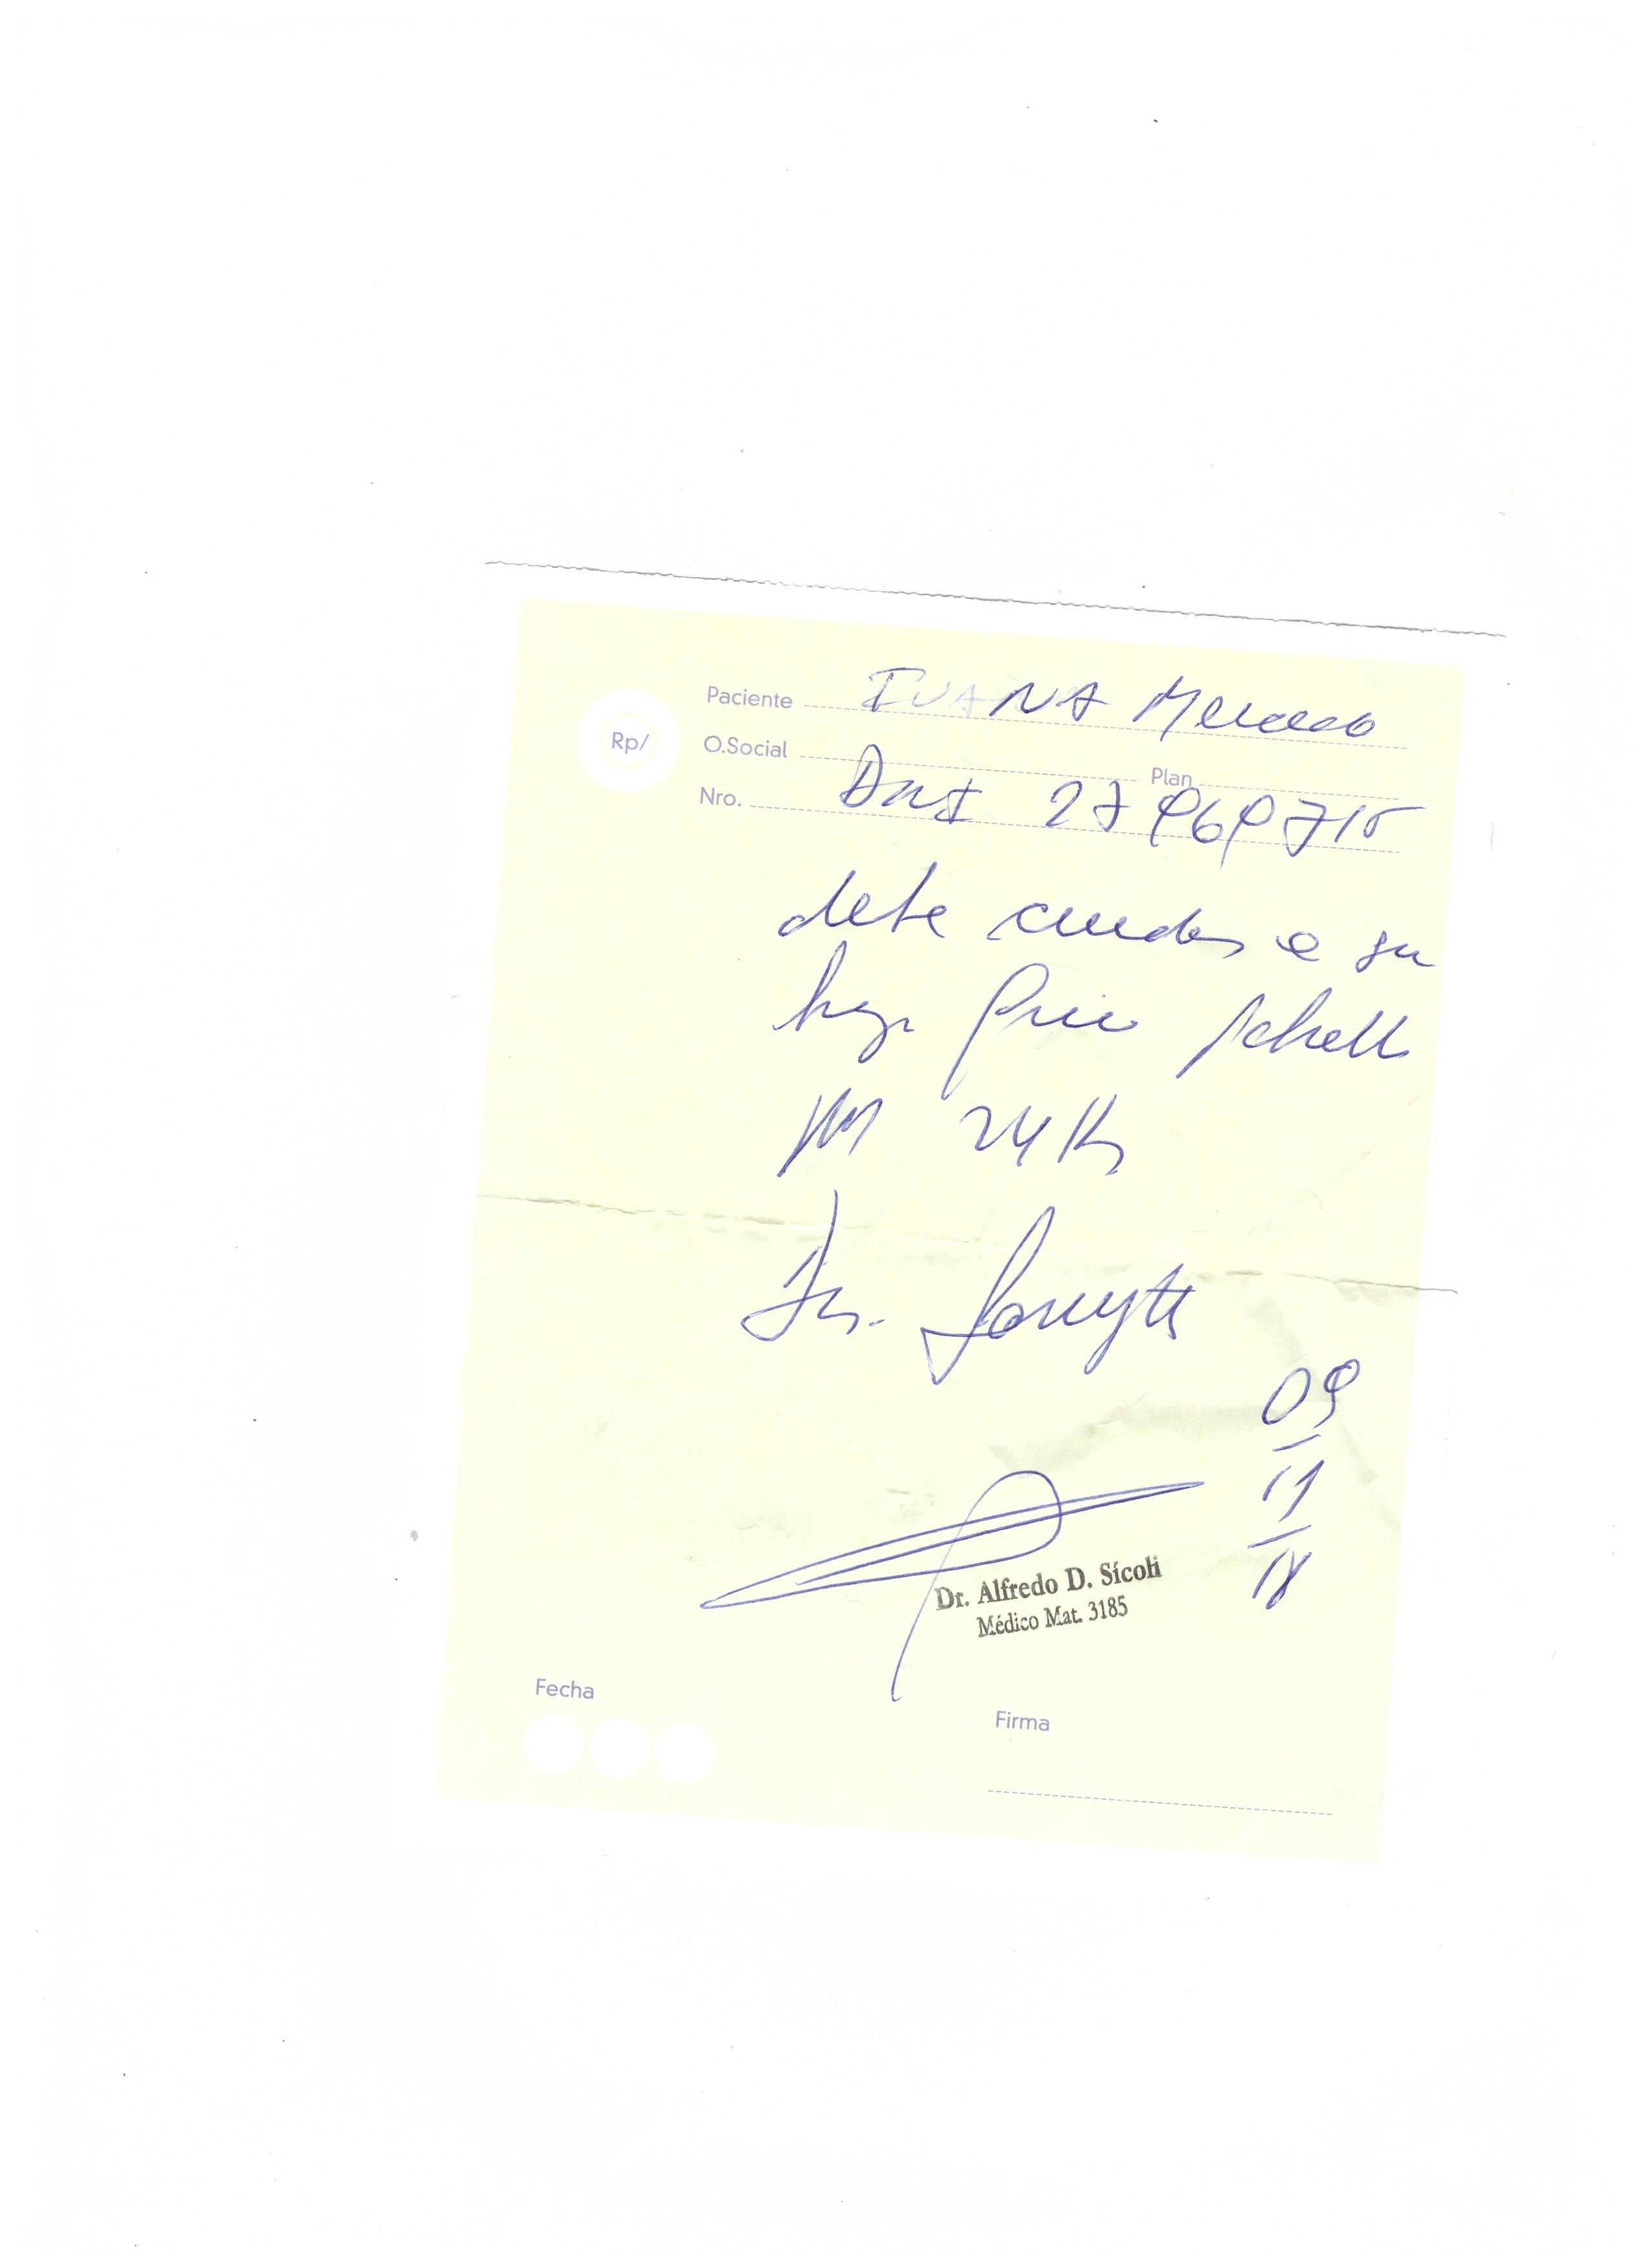 Paciente IVANA
O.Social Plan
Rp/
Nro. DNI 27969715
debe cuidar a su
24 Hs
Faringitis
09
11
18
Dr. Alfredo D. Sícoli
Médico Mat. 3185
Fecha
Firma